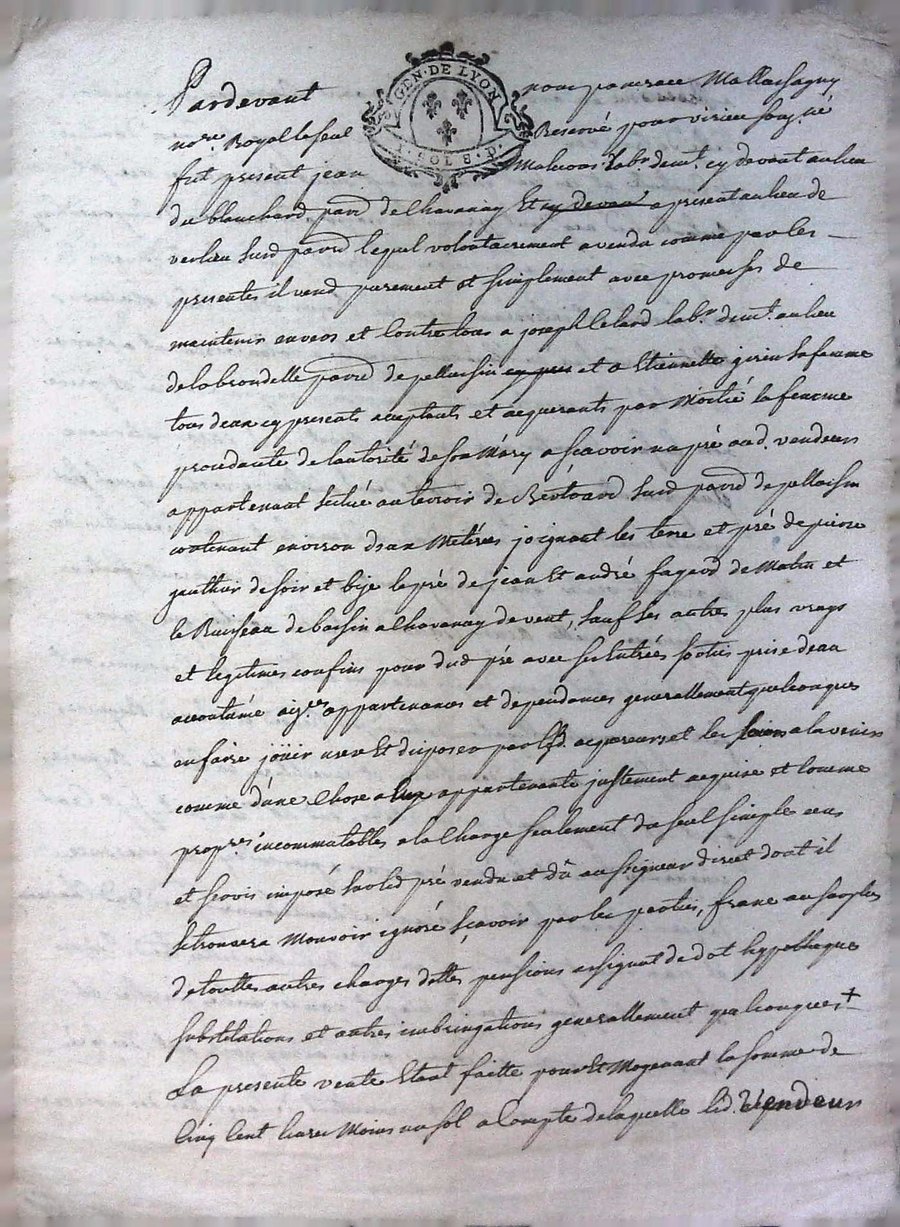 GEN · DE LYON
1 · SOL 8 · D ·
Pardevant nous pancrace Mallassagny
no.re Royal le seul Reservé pour virieu soug.né
fut present jean Malucois lab.r dem.t cy devant au lieu
du blanchard parr.d de Chavanay Et cy devan a present au lieu de
verlieu susd parr.d lequel volontairement a vendu comme par les
presentes il vend purement et simplement avec promesses de
maintenir envers et Contre tous a joseph lelard lab.r dem.t au lieu
de la brondelle parr.d de pellussin cy pres et a Etiennette girin sa femme
tous deux cy presents acceptants et acquerants par Moitié la femme
procedante de lautorité de son Mary a scavoir un pré aud. vendeur
appartenant scitué au terroir de Bertrand susd parr.d de pellussin
contenant environ deux Metéres joignant les terre et pré de pierre
gauthier de soir et bize le pré de jean Et andré fagard de Matin et
le Ruisseau de bassin a Chavanay de vent, sauf ses autres plus vrays
et legitimes confins pour dud pré avec ses Entrées sorties prise deau
accoutumé aiz.es appartenances et dependances generallement quelconques
en faire joüir user Et disposer par lesd. acquereurs et les siens a lavenir
comme dune Chose a eux appartenante justement acquise et comme
propr.es incommutables a la Charge seulement du seul simple cens
et servis imposé sur led pré vendu et dû au seigneur direct dont il
se trouvera Mouvoir ignoré sçavoir par les parties, franc au surplus
de touttes autres charges dettes pensions assignat de dot hypotheque
substitutions et autres imbringations generallement quelconques +
La presente vente Etant faitte pour Et Moyenant la somme de
Cinq Cent livres Moins un sol a Compte de laquelle led. Vendeur